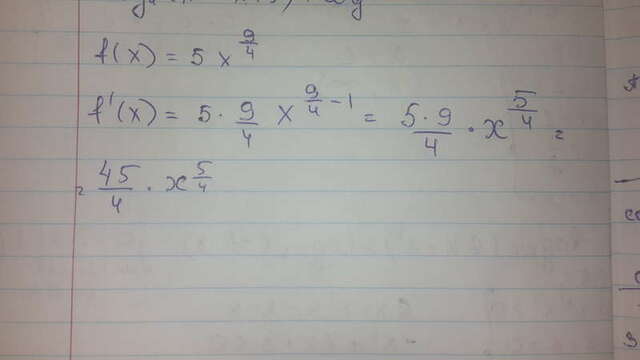 f(x) = 5 x^(9/4)
f'(x) = 5 · 9/4 x^(9/4 - 1) = 5·9/4 · x^(5/4) =
= 45/4 · x^(5/4)